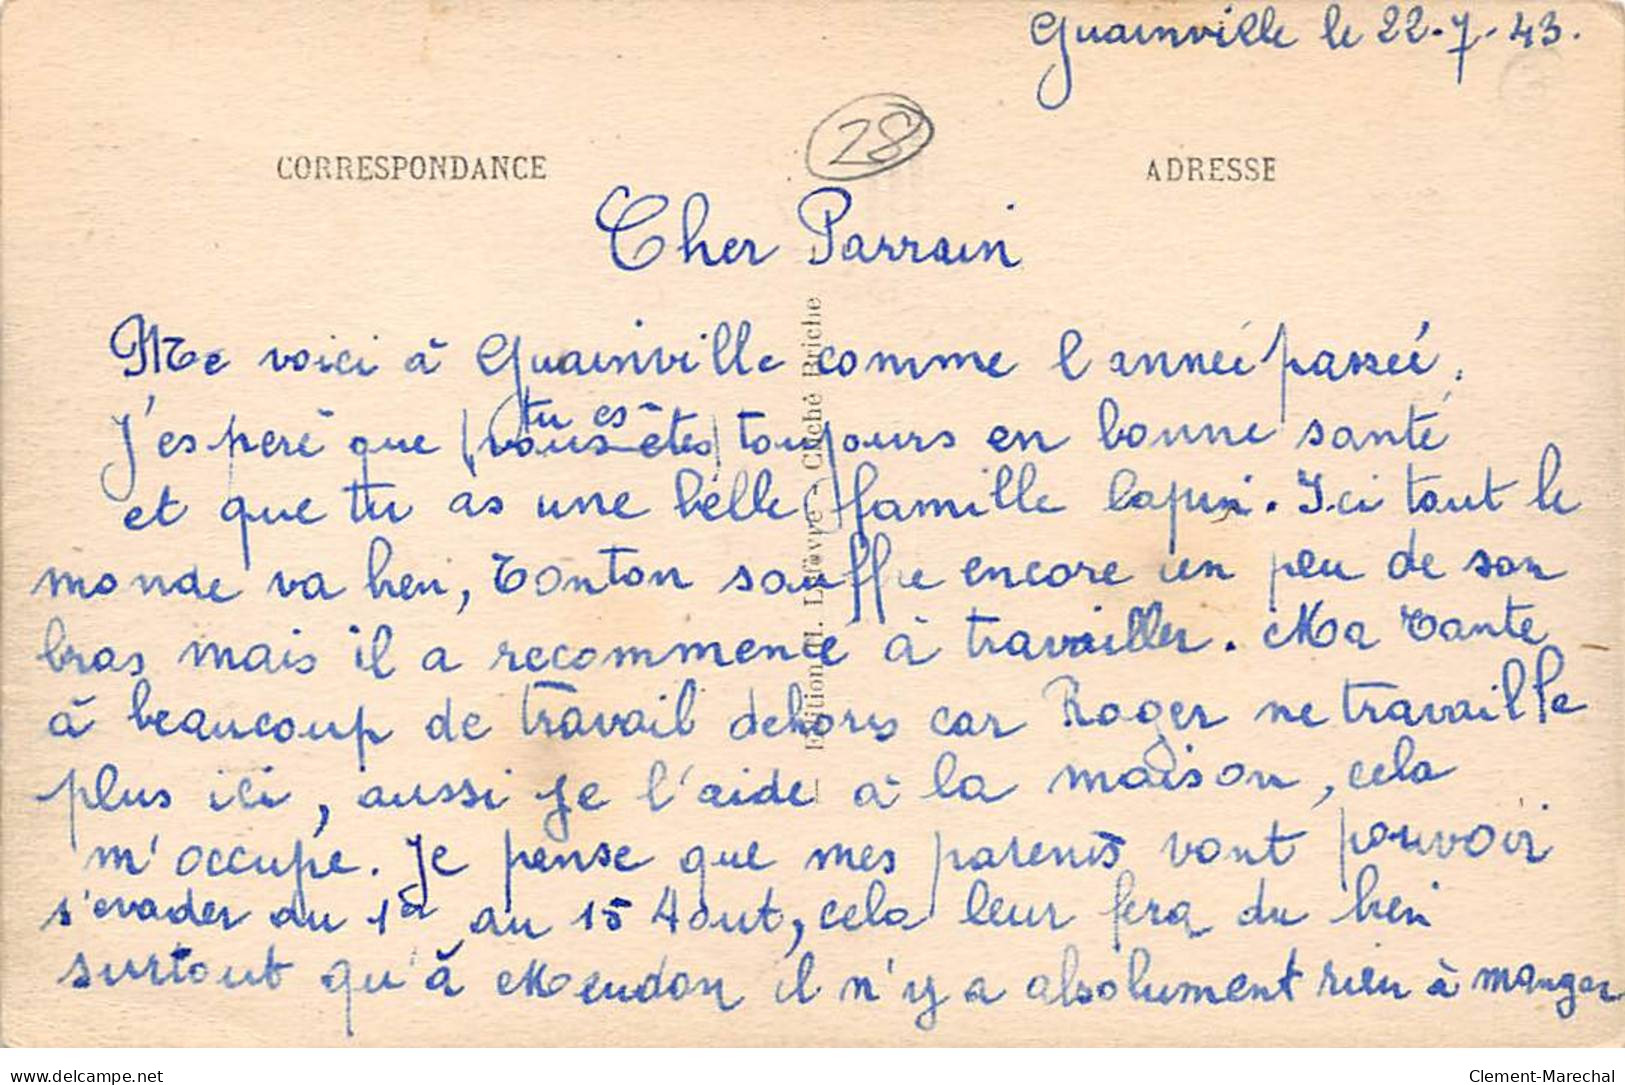 Guainville le 22-7-43.
28
CORRESPONDANCE
ADRESSE
Cher Parrain
Me voici à Guainville comme l'année passée.
tu es
J'espère que (vous êtes) toujours en bonne santé
et que tu as une belle famille lapin. Ici tout le
monde va bien, Tonton souffre encore un peu de son
bras mais il a recommencé à travailler. Ma Tante
à beaucoup de travail dehors car Roger ne travaille
plus ici, aussi je l'aide à la maison, cela
m'occupe. Je pense que mes parents vont pouvoir
s'evader du 1er au 15 Aout, cela leur fera du bien
surtout qu'à Meudon il n'y a absolument rien à manger
Edition H. Lefèvre - Cliché Briche
www.delcampe.net
Clement-Marechal